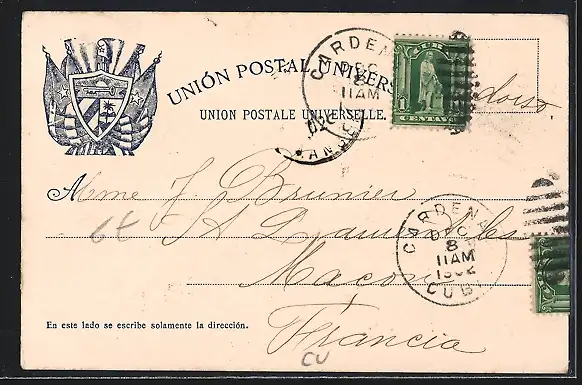 UNIÓN POSTAL UNIVERS
UNION POSTALE UNIVERSELLE.
CARDEN
DEC
8
11AM
CUB
1
CENTAV
Mme J. Brunier
Macon
Francia
CARDEN
DEC
8
11AM
1902
CUB
En este lado se escribe solamente la dirección.
CU